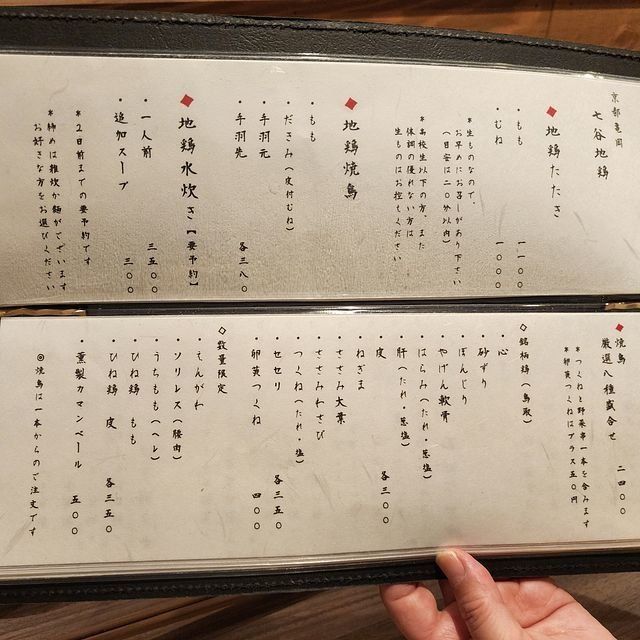 京都亀岡
七谷地鶏
◆地鶏たたき
・もも 一一〇〇
・むね 一〇〇〇
*生ものなので、
お早めにお召しがあり下さい
(目安は二〇分以内)
*高校生以下の方、また
体調の優れない方は
生ものはお控えください
◆地鶏焼鳥
・もも
・ださみ(皮付むね)
・手羽元
・手羽先 各三八〇
◆地鶏水炊き【要予約】
・一人前 三五〇〇
・追加スープ 三〇〇
*2日前までの要予約です
*締めは雑炊か麺がございます
お好きな方をお選びください
◆焼鳥
厳選八種盛合せ 二四〇〇
*つくねと野菜串一本を含みます
*卵黄つくねはプラス五〇円
◇銘柄鶏(鳥取)
・心
・砂ずり
・ぼんじり
・やげん軟骨
・はらみ(たれ・葱塩)
・肝(たれ・葱塩)
・皮 各三〇〇
・ねぎま
・ささみ大葉
・ささみわさび
・つくね(たれ・塩)
・セセリ 各三五〇
・卵黄つくね 四〇〇
◇数量限定
・えんがわ
・ソリレス(腰肉)
・うちもも(ヘレ)
・ひね鶏 もも
・ひね鶏 皮 各三五〇
・薫製カマンベール 五〇〇
◎焼鳥は一本からのご注文です